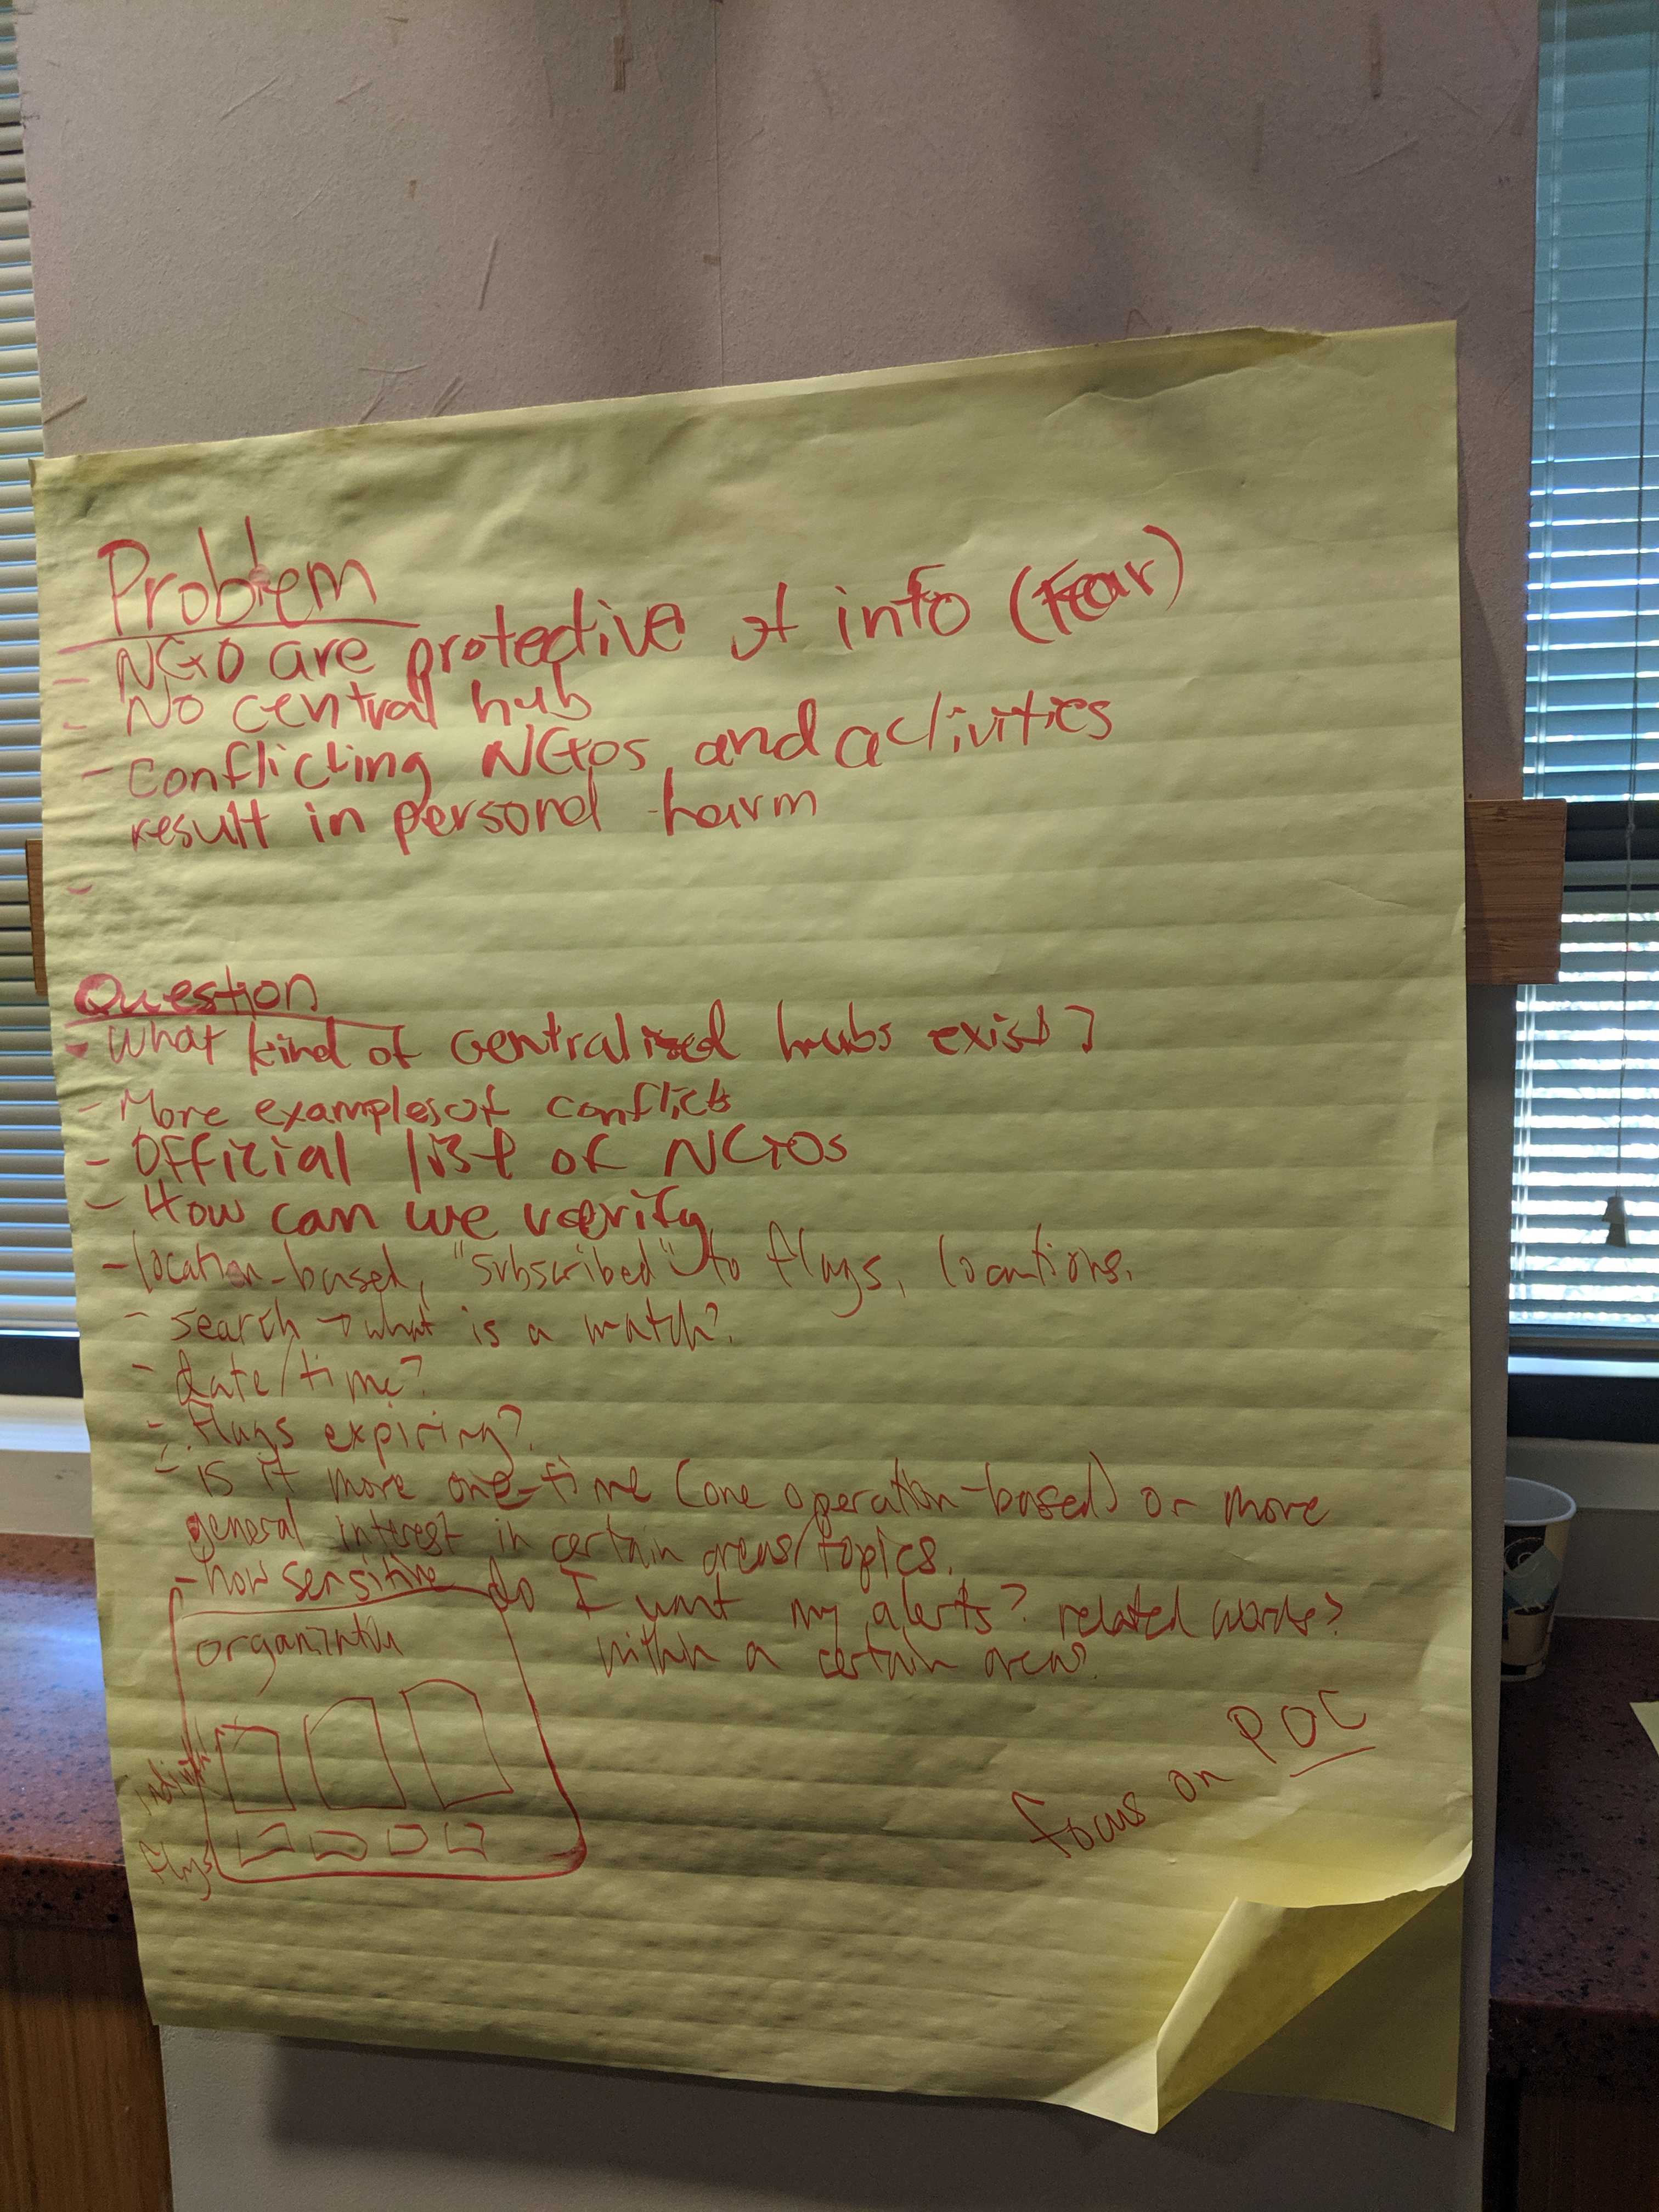 Problem
- NGO are protective of info (Fear)
- No central hub
- conflicting NGOs and activities
result in personal harm
-
Question
- What kind of centralized hubs exist?
- More examples of conflicts
- Official list of NGOs
- How can we verify
- location-based, "subscribed" to flags, locations.
- search → what is a match?
- date/time?
- flags expiring?
- is it more one-time (one operation-based) or more
general interest in certain areas/topics.
- how sensitive do I want my alerts? related words?
within a certain area?
organization
flags
focus on POC